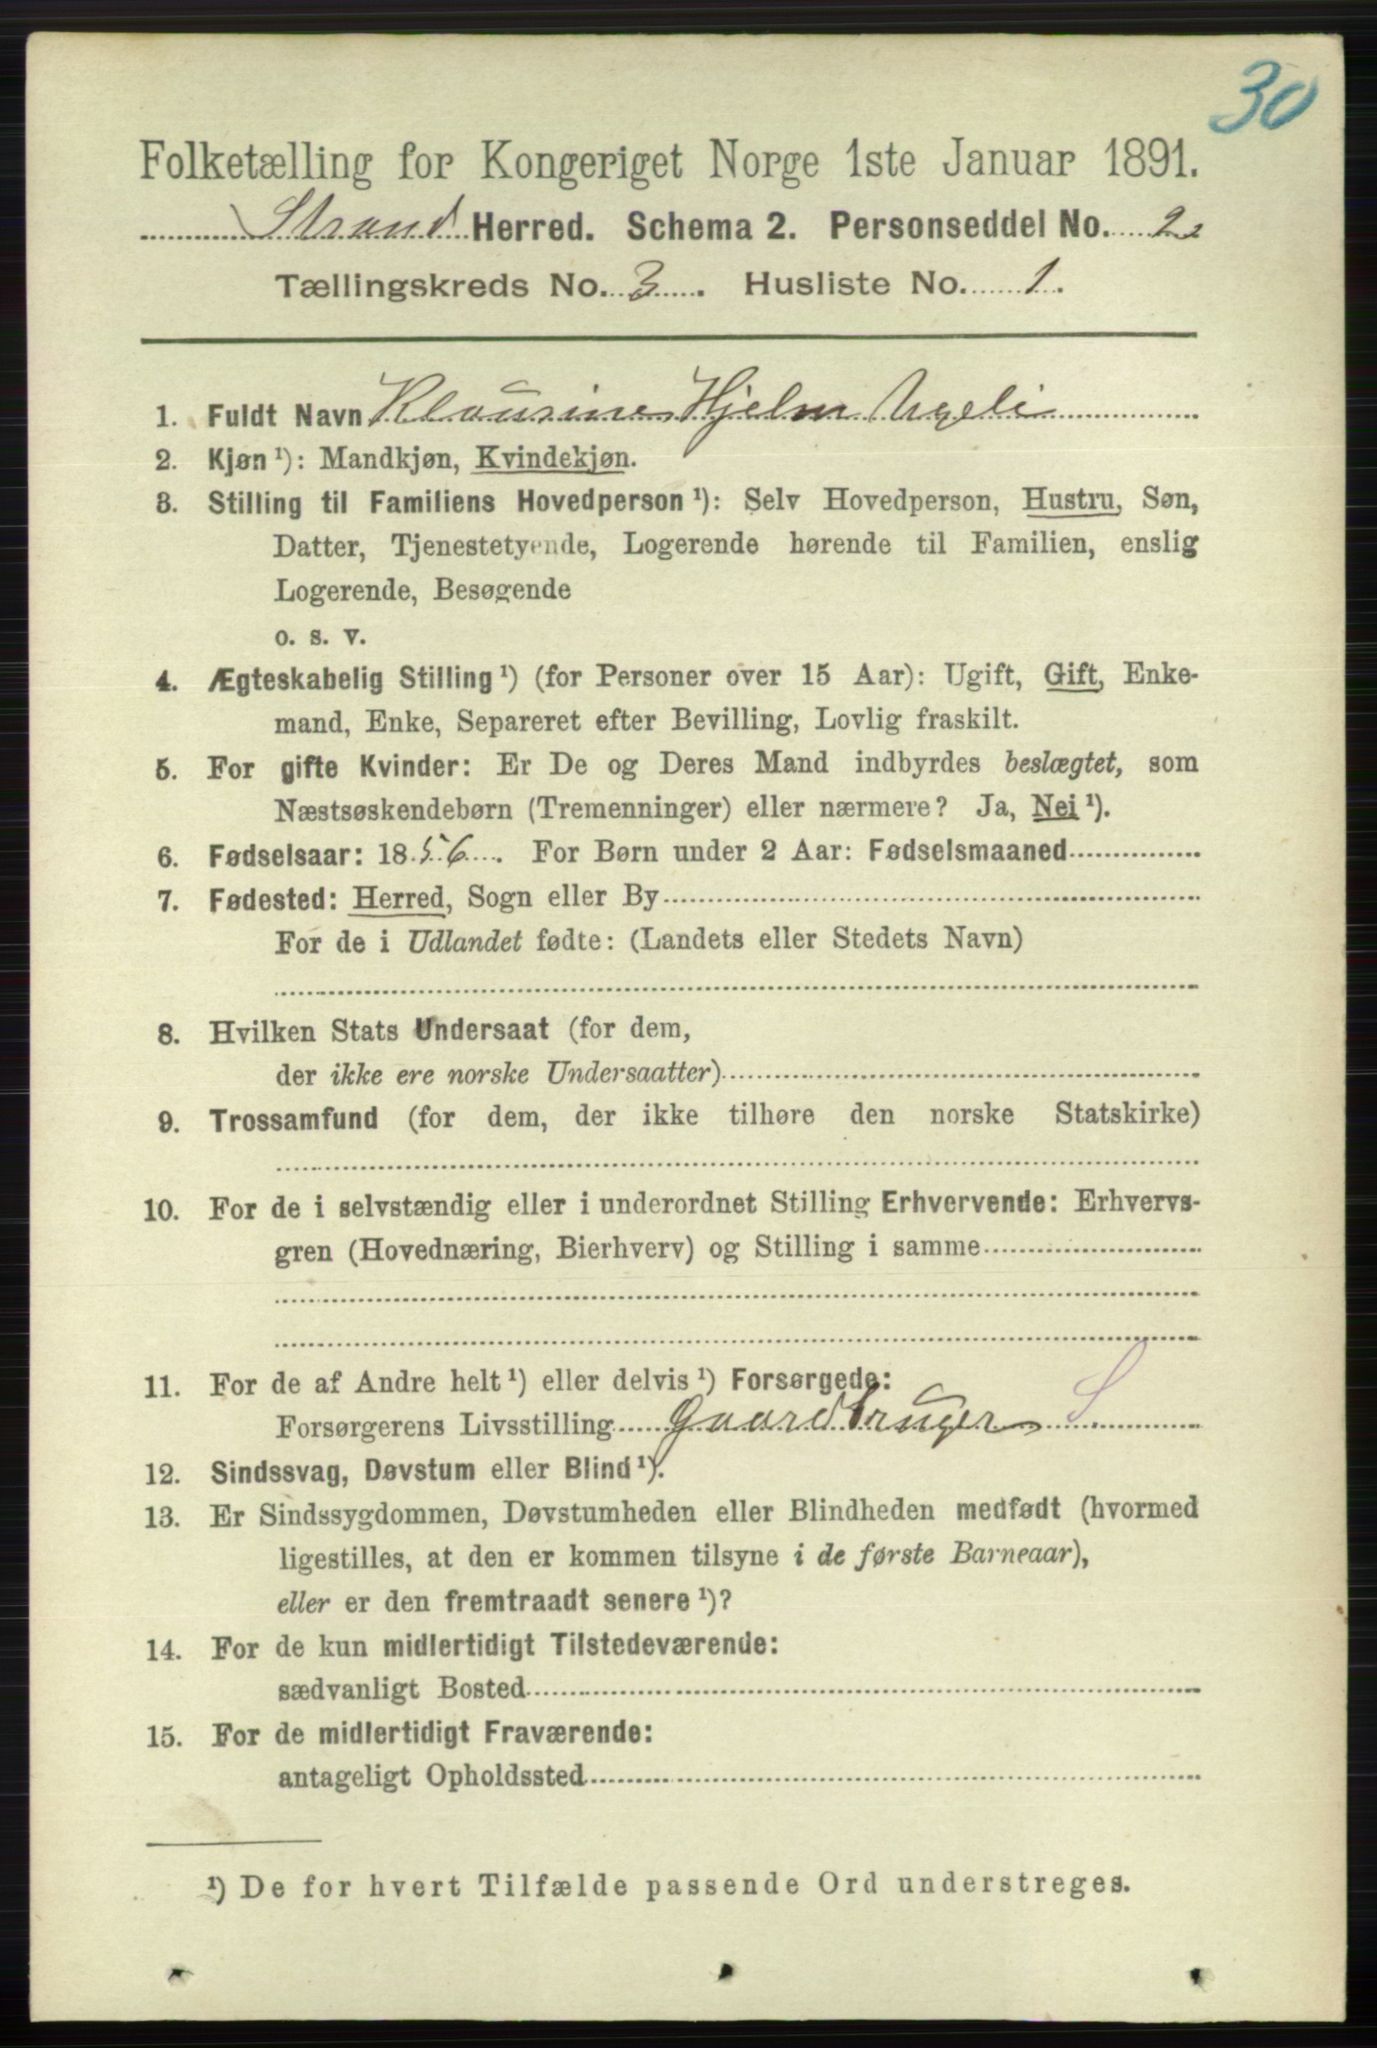 30
Folketælling for Kongeriget Norge 1ste Januar 1891.
Strand Herred. Schema 2. Personseddel No. 2
Tællingskreds No. 3. Husliste No. 1.
1. Fuldt Navn Klausine Hjelm
2. Kjøn ¹): Mandkjøn, Kvindekjøn.
3. Stilling til Familiens Hovedperson ¹): Selv Hovedperson, Hustru, Søn,
Datter, Tjenestetyende, Logerende hørende til Familien, enslig
Logerende, Besøgende
o. s. v.
4. Ægteskabelig Stilling ¹) (for Personer over 15 Aar): Ugift, Gift, Enke-
mand, Enke, Separeret efter Bevilling, Lovlig fraskilt.
5. For gifte Kvinder: Er De og Deres Mand indbyrdes beslægtet, som
Næstsøskendebørn (Tremenninger) eller nærmere? Ja, Nei ¹).
6. Fødselsaar: 1856. For Børn under 2 Aar: Fødselsmaaned
7. Fødested: Herred, Sogn eller By
For de i Udlandet fødte: (Landets eller Stedets Navn)
8. Hvilken Stats Undersaat (for dem,
der ikke ere norske Undersaatter)
9. Trossamfund (for dem, der ikke tilhøre den norske Statskirke)
10. For de i selvstændig eller i underordnet Stilling Erhvervende: Erhvervs-
gren (Hovednæring, Bierhverv) og Stilling i samme
11. For de af Andre helt ¹) eller delvis ¹) Forsørgede:
Forsørgerens Livsstilling Gaardbruger S
12. Sindssvag, Døvstum eller Blind ¹).
13. Er Sindssygdommen, Døvstumheden eller Blindheden medfødt (hvormed
ligestilles, at den er kommen tilsyne i de første Barneaar),
eller er den fremtraadt senere ¹)?
14. For de kun midlertidigt Tilstedeværende:
sædvanligt Bosted
15. For de midlertidigt Fraværende:
antageligt Opholdssted
¹) De for hvert Tilfælde passende Ord understreges.